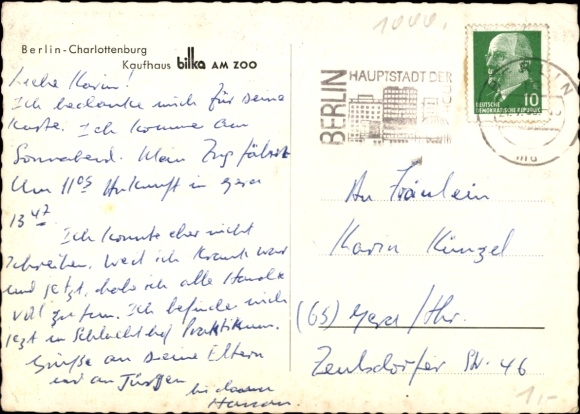 1000.
Berlin-Charlottenburg
Kaufhaus bilka AM ZOO
BERLIN
HAUPTSTADT DER
DEUTSCHE
DEMOKRATISCHE REPUBLIK
10
Liebe Karin!
Ich bedanke mich für deine
Karte. Ich komme am
Sonnabend. Mein Zug fährt
Um 11 05 Ankunft in Gera
13 47
Ich konnte eher nicht
schreiben. Weil ich krank war
und jetzt habe ich alle Hände
voll zu tun. Ich befinde mich
jetzt in Schlachthof Praktikum.
Grüße an deine Eltern
und an Jürgen
bis dann
An Fräulein
Karin Künzel
(65) Gera/Thr.
Zeulsdorfer Str. 46
1,-